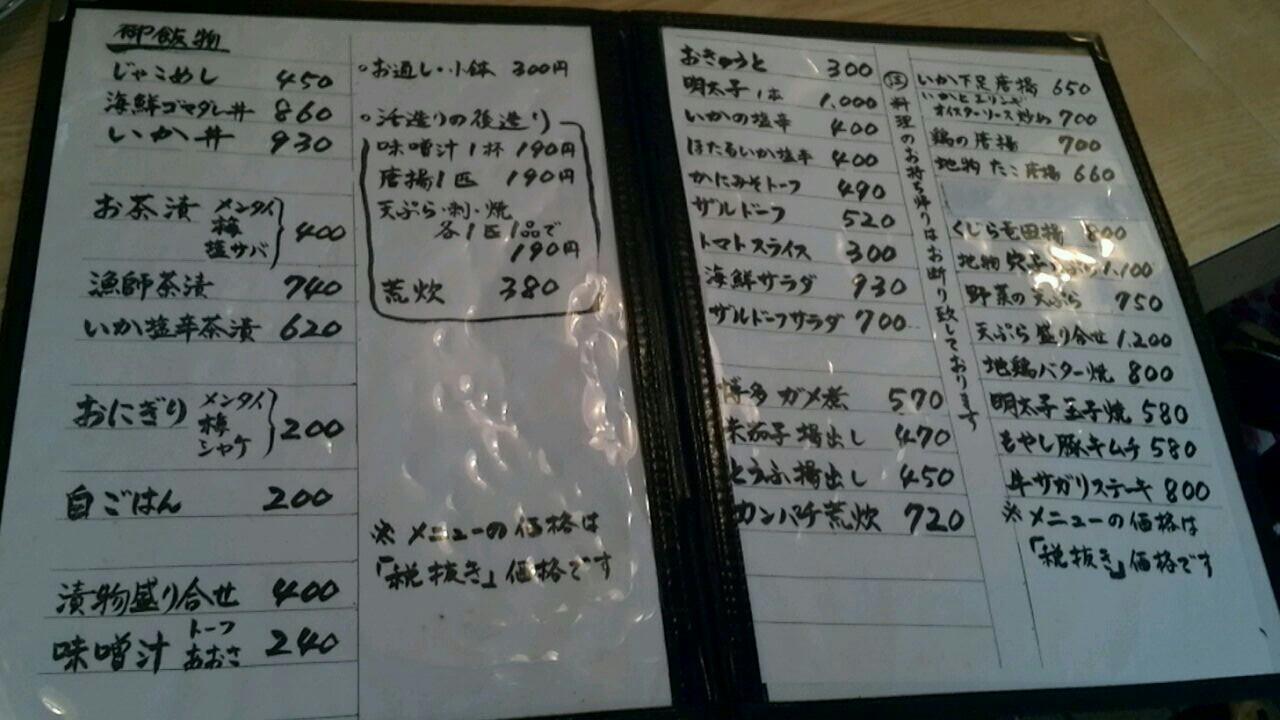 御飯物
じゃこめし 450
海鮮ゴマダレ丼 860
いか丼 930
お茶漬 メンタイ 梅 塩サバ 400
漁師茶漬 740
いか塩辛茶漬 620
おにぎり メンタイ 梅 シャケ 200
白ごはん 200
漬物盛り合せ 400
味噌汁 トーフ あおさ 240
○お通し・小鉢 300円
○活造りの後造り
味噌汁1杯 190円
唐揚1匹 190円
天ぷら・刺・焼
各1匹1品で
190円
荒炊 380
※メニューの価格は
「税抜き」価格です
おきゅうと 300
明太子1本 1,000
いかの塩辛 400
ほたるいか塩辛 400
かにみそトーフ 490
ザルドーフ 520
トマトスライス 300
海鮮サラダ 930
ザルドーフサラダ 700
博多ガメ煮 570
米茄子揚出し 470
とうふ揚出し 450
カンパチ荒炊 720
注 料理のお持ち帰りはお断り致しております
いか下足唐揚 650
いかとエリンギ
オイスターソース炒め 700
鶏の唐揚 700
地物たこ唐揚 660
くじら竜田揚 800
地物穴子天ぷら 1,100
野菜の天ぷら 750
天ぷら盛り合せ 1,200
地鶏バター焼 800
明太子玉子焼 580
もやし豚キムチ 580
牛サガリステーキ 800
※メニューの価格は
「税抜き」価格です